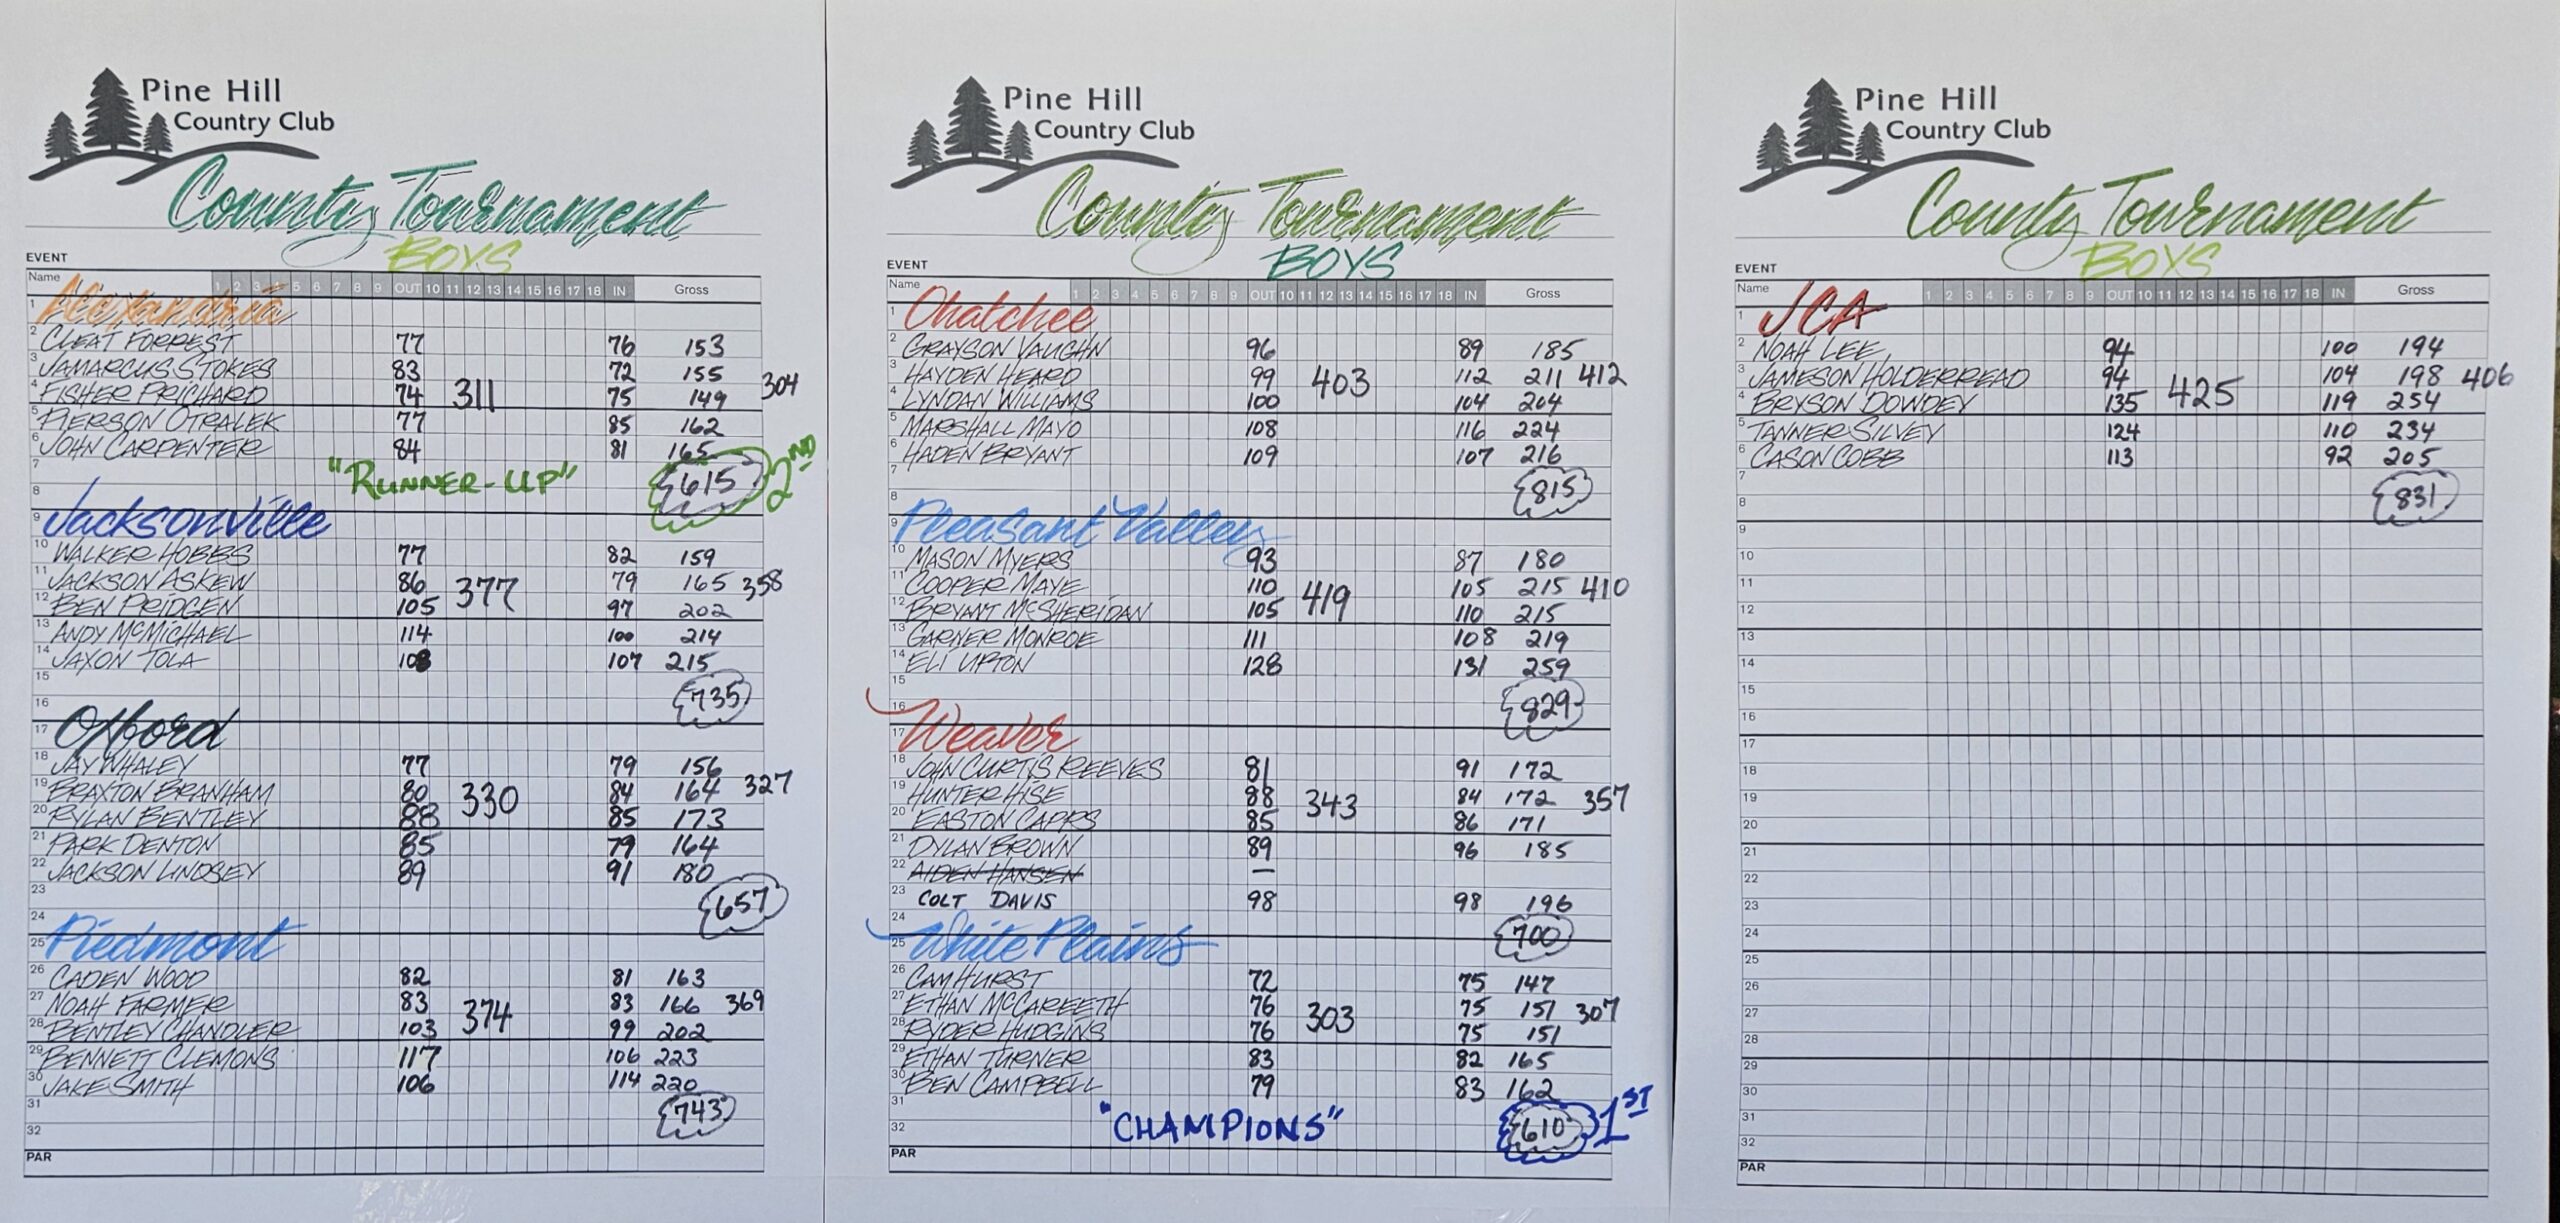 Pine Hill
Country Club
County Tournament
BOYS
EVENT
Name 1 2 3 5 6 7 8 9 OUT 10 11 12 13 14 15 16 17 18 IN Gross
1 Alexandria
2 CLEAT FORREST 77 76 153
3 JAMARCUS STOKES 83 72 155 304
4 FISHER PRICHARD 74 311 75 149
5 PIERSON OTRALEK 77 85 162
6 JOHN CARPENTER 84 81 165
7 "RUNNER-UP" 615 2ND
8
9 Jacksonville
10 WALKER HOBBS 77 82 159
11 JACKSON ASKEW 86 377 79 165 358
12 BEN PRIDGEN 105 97 202
13 ANDY McMICHAEL 114 100 214
14 JAXON TOLA 108 107 215
15 735
16
17 Oxford
18 JAY WHALEY 77 79 156
19 BRAXTON BRANHAM 80 330 84 164 327
20 RYLAN BENTLEY 88 85 173
21 PARK DENTON 85 79 164
22 JACKSON LINDSEY 89 91 180
23 657
24
25 Piedmont
26 CADEN WOOD 82 81 163
27 NOAH FARMER 83 374 83 166 369
28 BENTLEY CHANDLER 103 99 202
29 BENNETT CLEMONS 117 106 223
30 JAKE SMITH 106 114 220
31 743
32
PAR
Pine Hill
Country Club
County Tournament
BOYS
EVENT
Name 1 2 3 4 5 6 7 8 9 OUT 10 11 12 13 14 15 16 17 18 IN Gross
1 Ohatchee
2 GRAYSON VAUGHN 96 89 185
3 HAYDEN HEARD 99 403 112 211 412
4 LYNDAN WILLIAMS 100 104 204
5 MARSHALL MAYO 108 116 224
6 HADEN BRYANT 109 107 216
7 815
8
9 Pleasant Valley
10 MASON MYERS 93 87 180
11 COOPER MAYE 110 419 105 215 410
12 BRYANT McSHERIDAN 105 110 215
13 GARNER MONROE 111 108 219
14 ELI UPTON 128 131 259
15 829
16
17 Weaver
18 JOHN CURTIS REEVES 81 91 172
19 HUNTER HISE 88 343 84 172 357
20 EASTON CAPPS 85 86 171
21 DYLAN BROWN 89 96 185
22 AIDEN HANSEN —
23 COLT DAVIS 98 98 196
24 700
25 White Plains
26 CAM HURST 72 75 147
27 ETHAN McCAREETH 76 303 75 151 307
28 RYDER HUDGINS 76 75 151
29 ETHAN TURNER 83 82 165
30 BEN CAMPBELL 79 83 162
31 "CHAMPIONS" 610 1ST
32
PAR
Pine Hill
Country Club
County Tournament
BOYS
EVENT
Name 1 2 3 4 5 6 7 8 9 OUT 10 11 12 13 14 15 16 17 18 IN Gross
1 JCA
2 NOAH LEE 94 100 194
3 JAMESON HOLDERREAD 94 425 104 198 406
4 BRYSON DOWDEY 135 119 254
5 TANNER SILVEY 124 110 234
6 CASON COBB 113 92 205
7 831
8
9
10
11
12
13
14
15
16
17
18
19
20
21
22
23
24
25
26
27
28
29
30
31
32
PAR